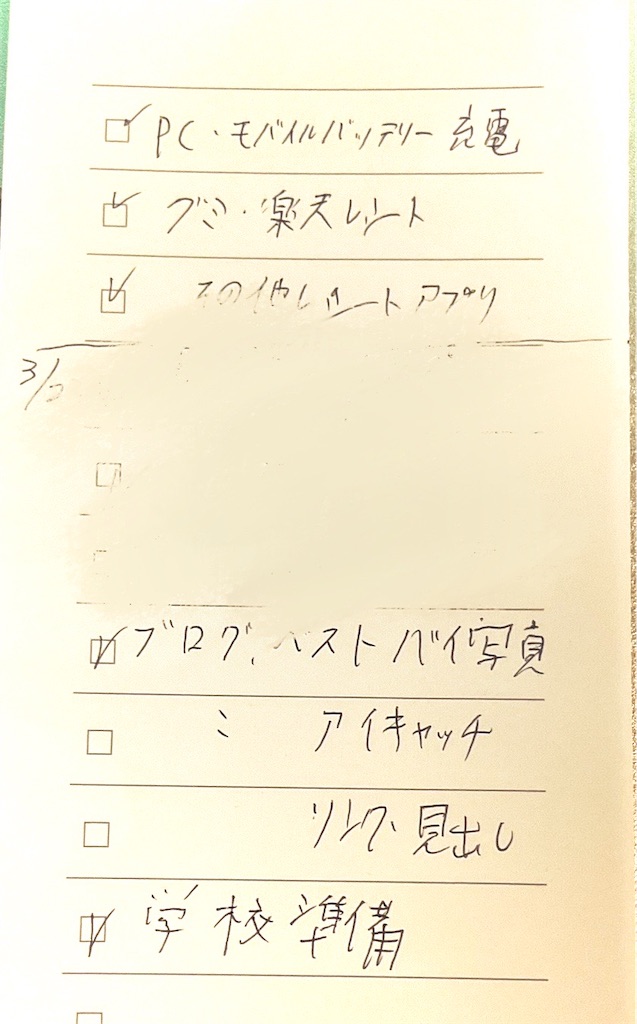 PC・モバイルバッテリー 充電
グミ・楽天レシート
その他レシートアプリ
3/2
ブログ、ベストバイ写真
〃 アイキャッチ
リンク、見出し
学校準備